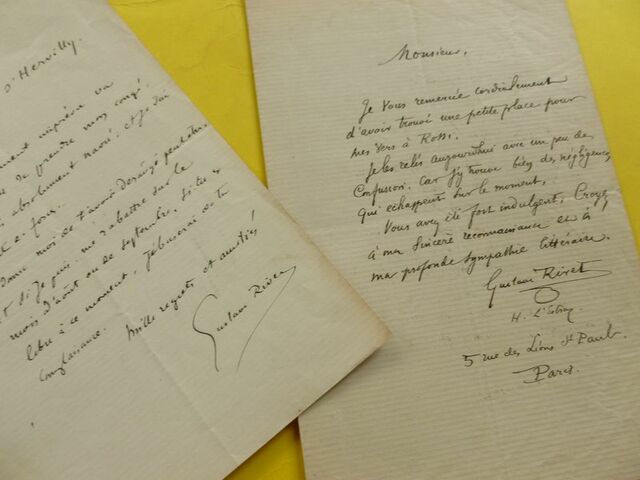 d'Hervilly.
de prendre mon congé
absolument navré, et je t'ai
moi de t'avoir dérangé peut-être
si je puis me rabattre sur le
mois d'août ou de septembre, si tu es
libre à ce moment, j'abuserai de ta
complaisance.
Mille regrets et amitiés!
Gustave Rivet
Monsieur,
Je vous remercie cordialement
d'avoir trouvé une petite place pour
mes vers à Rossi.
Je les relis aujourd'hui avec un peu de
confusion. Car j'y trouve bien des négligences
qui échappent sur le moment,
Vous avez été fort indulgent, Croyez
à ma sincère reconnaissance et à
ma profonde sympathie littéraire.
Gustave Rivet
5 rue des Lions St Paul.
Paris.